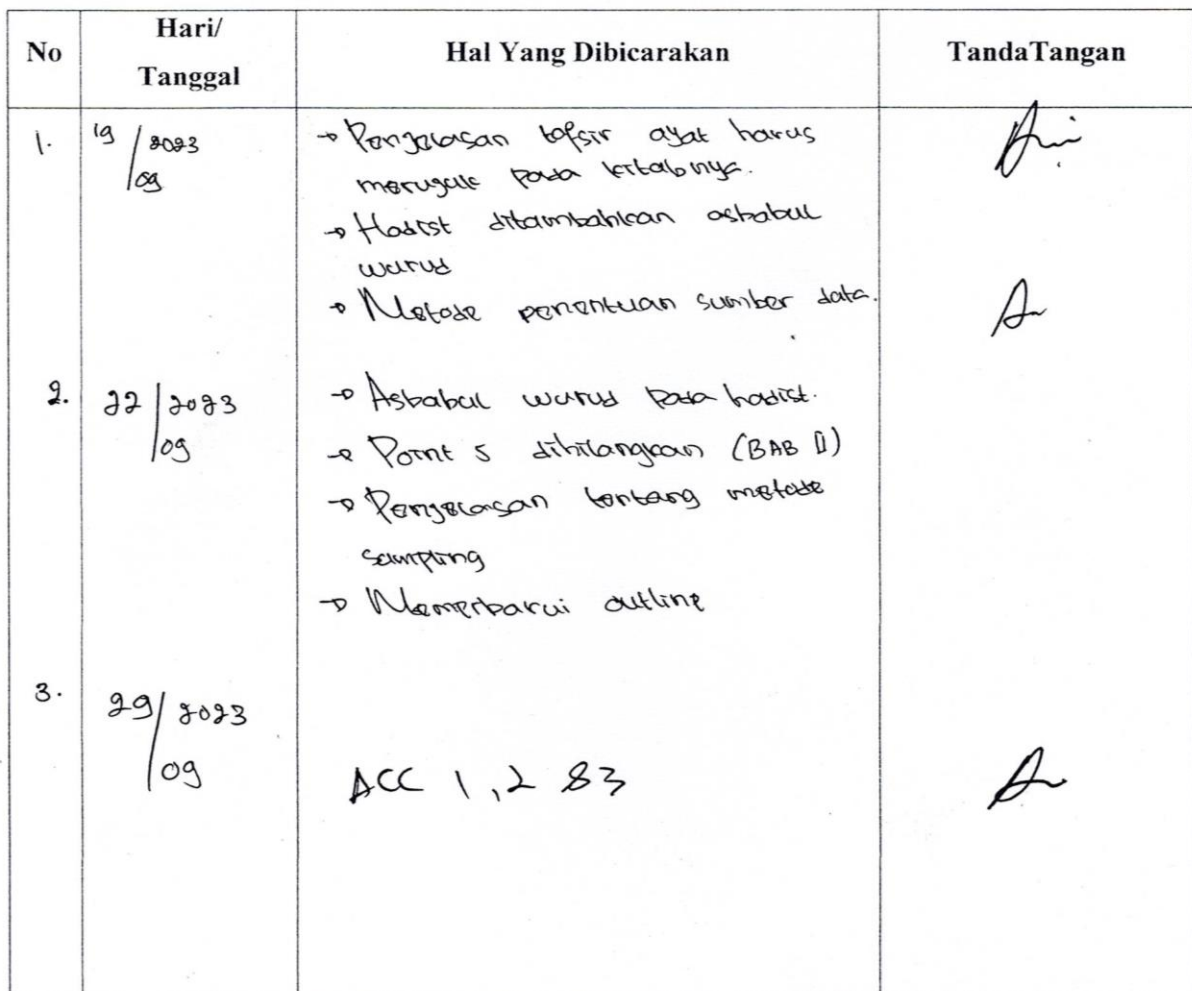 No
Hari/
Tanggal
Hal Yang Dibicarakan
TandaTangan
1.
19/2023
/09
→ Penjelasan tafsir ayat harus
merujuk pada kitabnya.
→ Hadist ditambahkan asbabul
wurud
→ Metode penentuan sumber data.
2.
22/2023
/09
→ Asbabul wurud pada hadist.
→ Point 5 dihilangkan (BAB II)
→ Penjelasan tentang metode
sampling
→ Memperbarui outline
3.
29/2023
/09
ACC 1, 2 &3